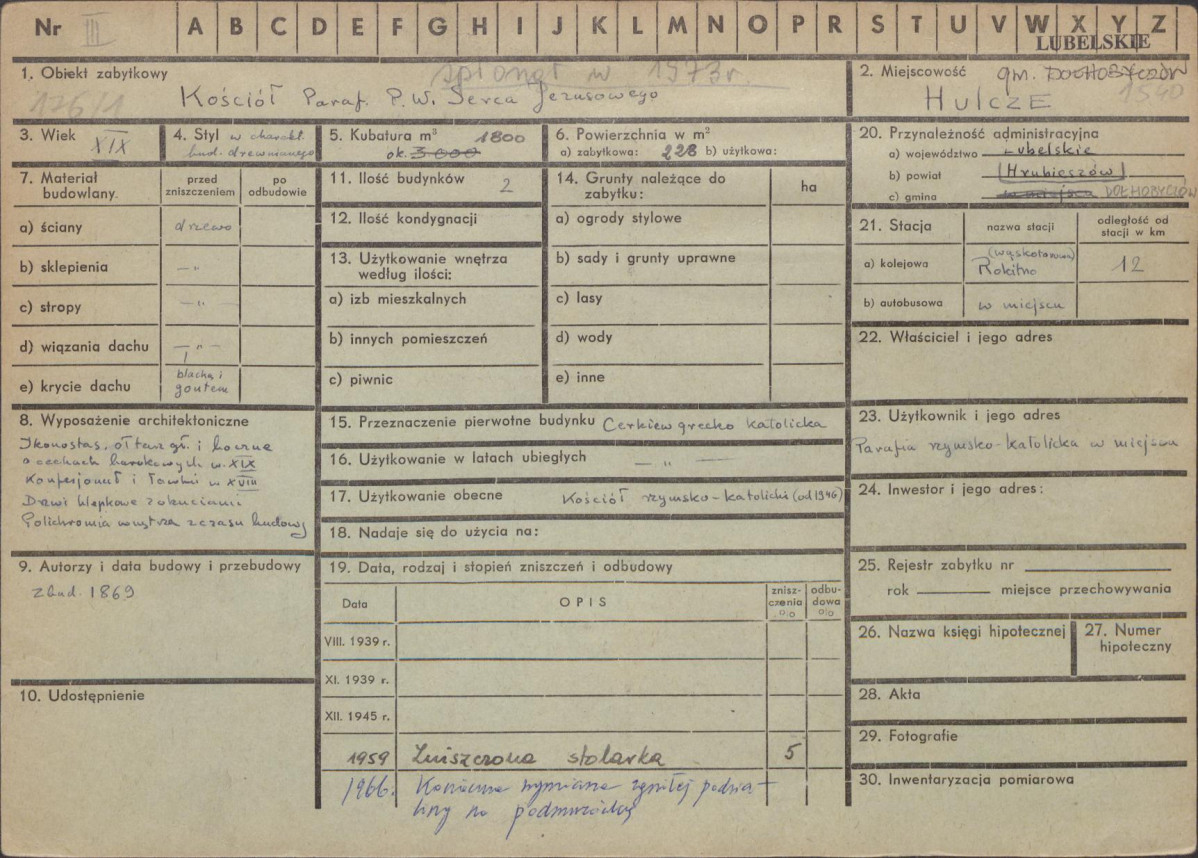 Nr III A B C D E F G H I J K L M N O P R S T U V W X Y Z
LUBELSKIE
spłonął w 1973 r.
1. Obiekt zabytkowy
176/1
Kościół Paraf. P.W. Serca Jezusowego
2. Miejscowość gm. DOŁHOBYCZÓW
1540
HULCZE
3. Wiek
XIX
4. Styl w charakt.
bud. drewnianego
5. Kubatura m³ 1800
ok. 3 000
6. Powierzchnia w m²
a) zabytkowa: 228 b) użytkowa:
7. Materiał
budowlany.
przed
zniszczeniem
po
odbudowie
a) ściany drzewo
b) sklepienia — " —
c) stropy — " —
d) wiązania dachu — " —
e) krycie dachu blachą i
gontem
8. Wyposażenie architektoniczne
Ikonostas, ołtarz gł. i boczne
o cechach barokowych w. XIX
Konfesjonał i ławki w XVIII
Drzwi klepkowe z okuciami
Polichromia wnętrza z czasu budowy
9. Autorzy i data budowy i przebudowy
zbud. 1869
10. Udostępnienie
11. Ilość budynków 2
12. Ilość kondygnacji
13. Użytkowanie wnętrza
według ilości:
a) izb mieszkalnych
b) innych pomieszczeń
c) piwnic
14. Grunty należące do
zabytku:
ha
a) ogrody stylowe
b) sady i grunty uprawne
c) lasy
d) wody
e) inne
15. Przeznaczenie pierwotne budynku Cerkiew grecko katolicka
16. Użytkowanie w latach ubiegłych — " —
17. Użytkowanie obecne Kościół rzymsko-katolicki (od 1946)
18. Nadaje się do użycia na:
19. Data, rodzaj i stopień zniszczeń i odbudowy
Data
OPIS
znisz-
czenia
%
odbu-
dowa
%
VIII. 1939 r.
XI. 1939 r.
XII. 1945 r.
1959 Zniszczona stolarka 5
1966. Konieczna wymiana zgniłej podwa-
liny na podmurówkę
20. Przynależność administracyjna
a) województwo Lubelskie
b) powiat (Hrubieszów)
c) gmina w miejscu DOŁHOBYCZÓW
21. Stacja
nazwa stacji
odległość od
stacji w km
a) kolejowa (wąskotorowa)
Rokitno
12
b) autobusowa w miejscu
22. Właściciel i jego adres
23. Użytkownik i jego adres
Parafia rzymsko-katolicka w miejscu
24. Inwestor i jego adres:
25. Rejestr zabytku nr
rok miejsce przechowywania
26. Nazwa księgi hipotecznej
27. Numer
hipoteczny
28. Akta
29. Fotografie
30. Inwentaryzacja pomiarowa